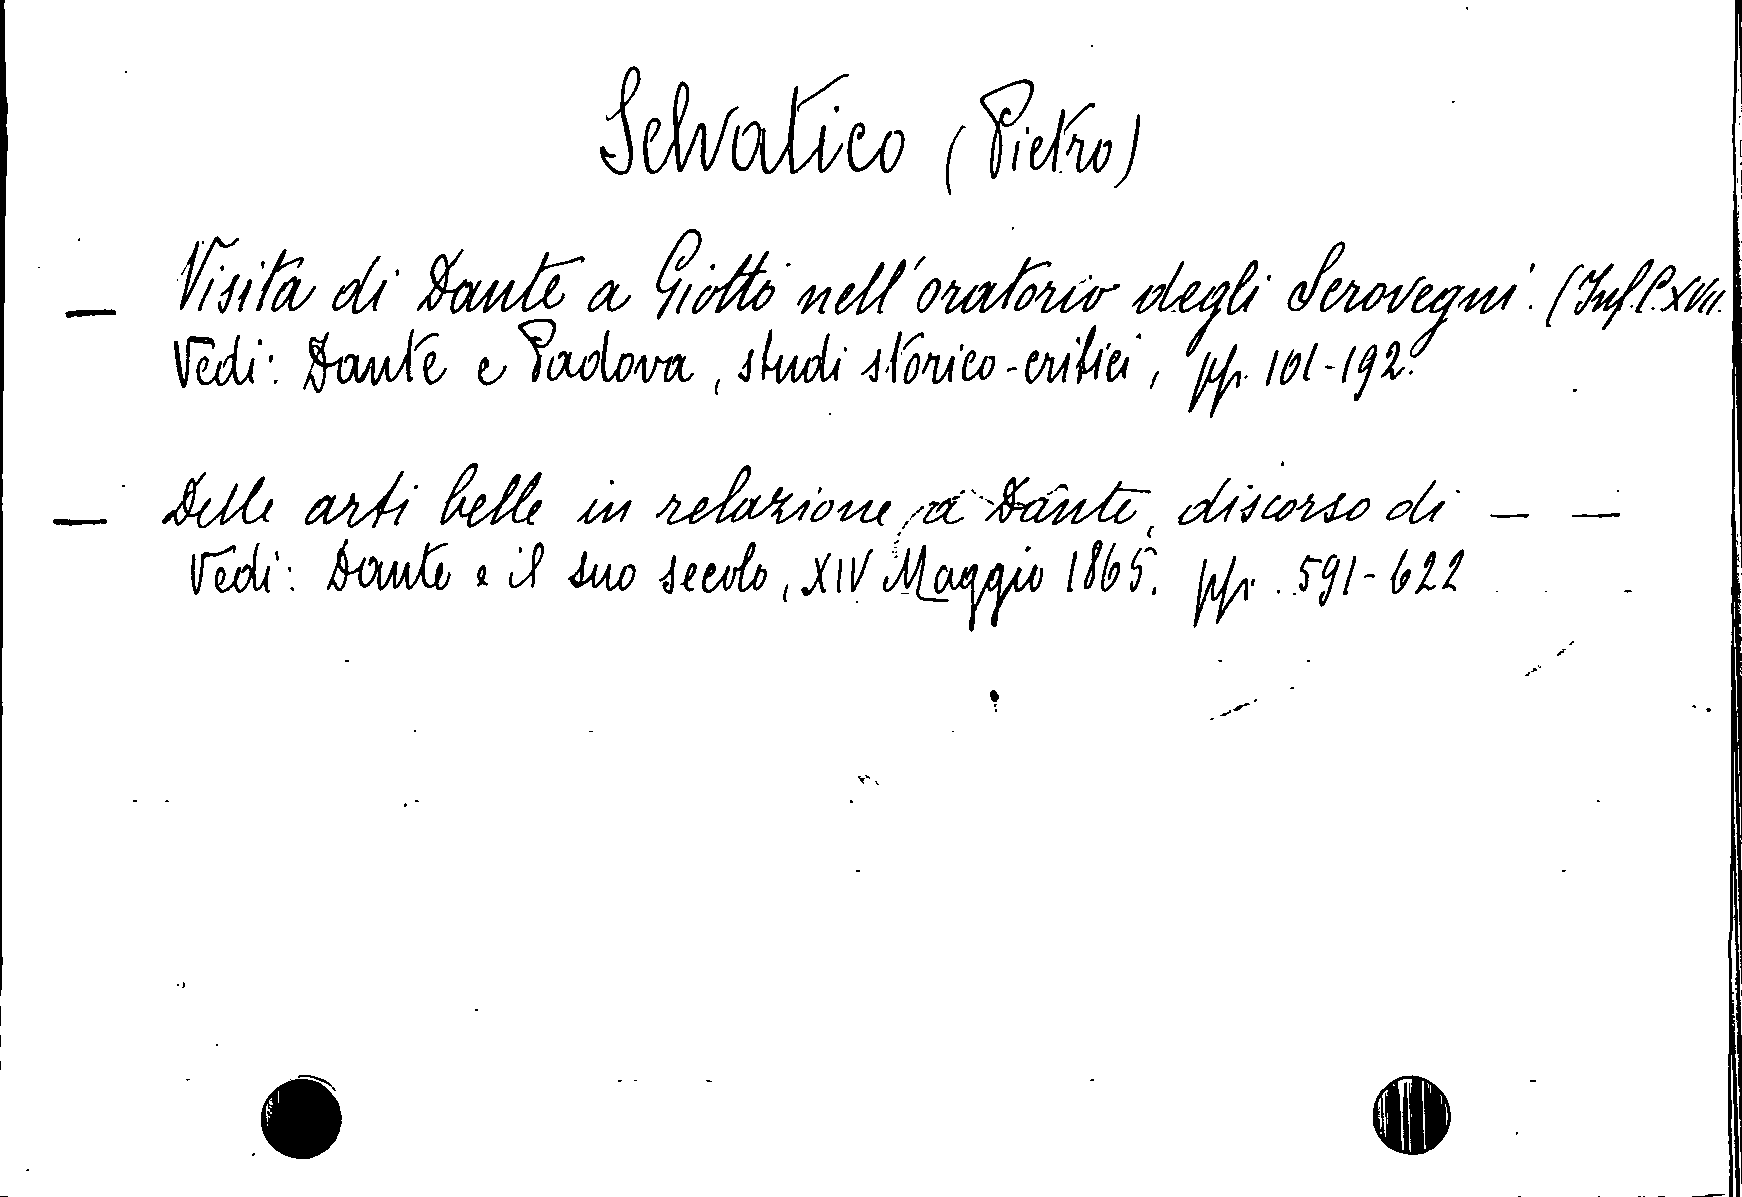 Selvatico (Pietro)
— Visita di Dante a Giotto nell'oratorio degli Scrovegni. (Inf. C. XVII.
Vedi: Dante e Padova, studi storico-critici, pp. 101-192.
— Delle arti belle in relazione a Dante, discorso di — —
Vedi: Dante e il suo secolo, XIV Maggio 1865. pp. 591-622